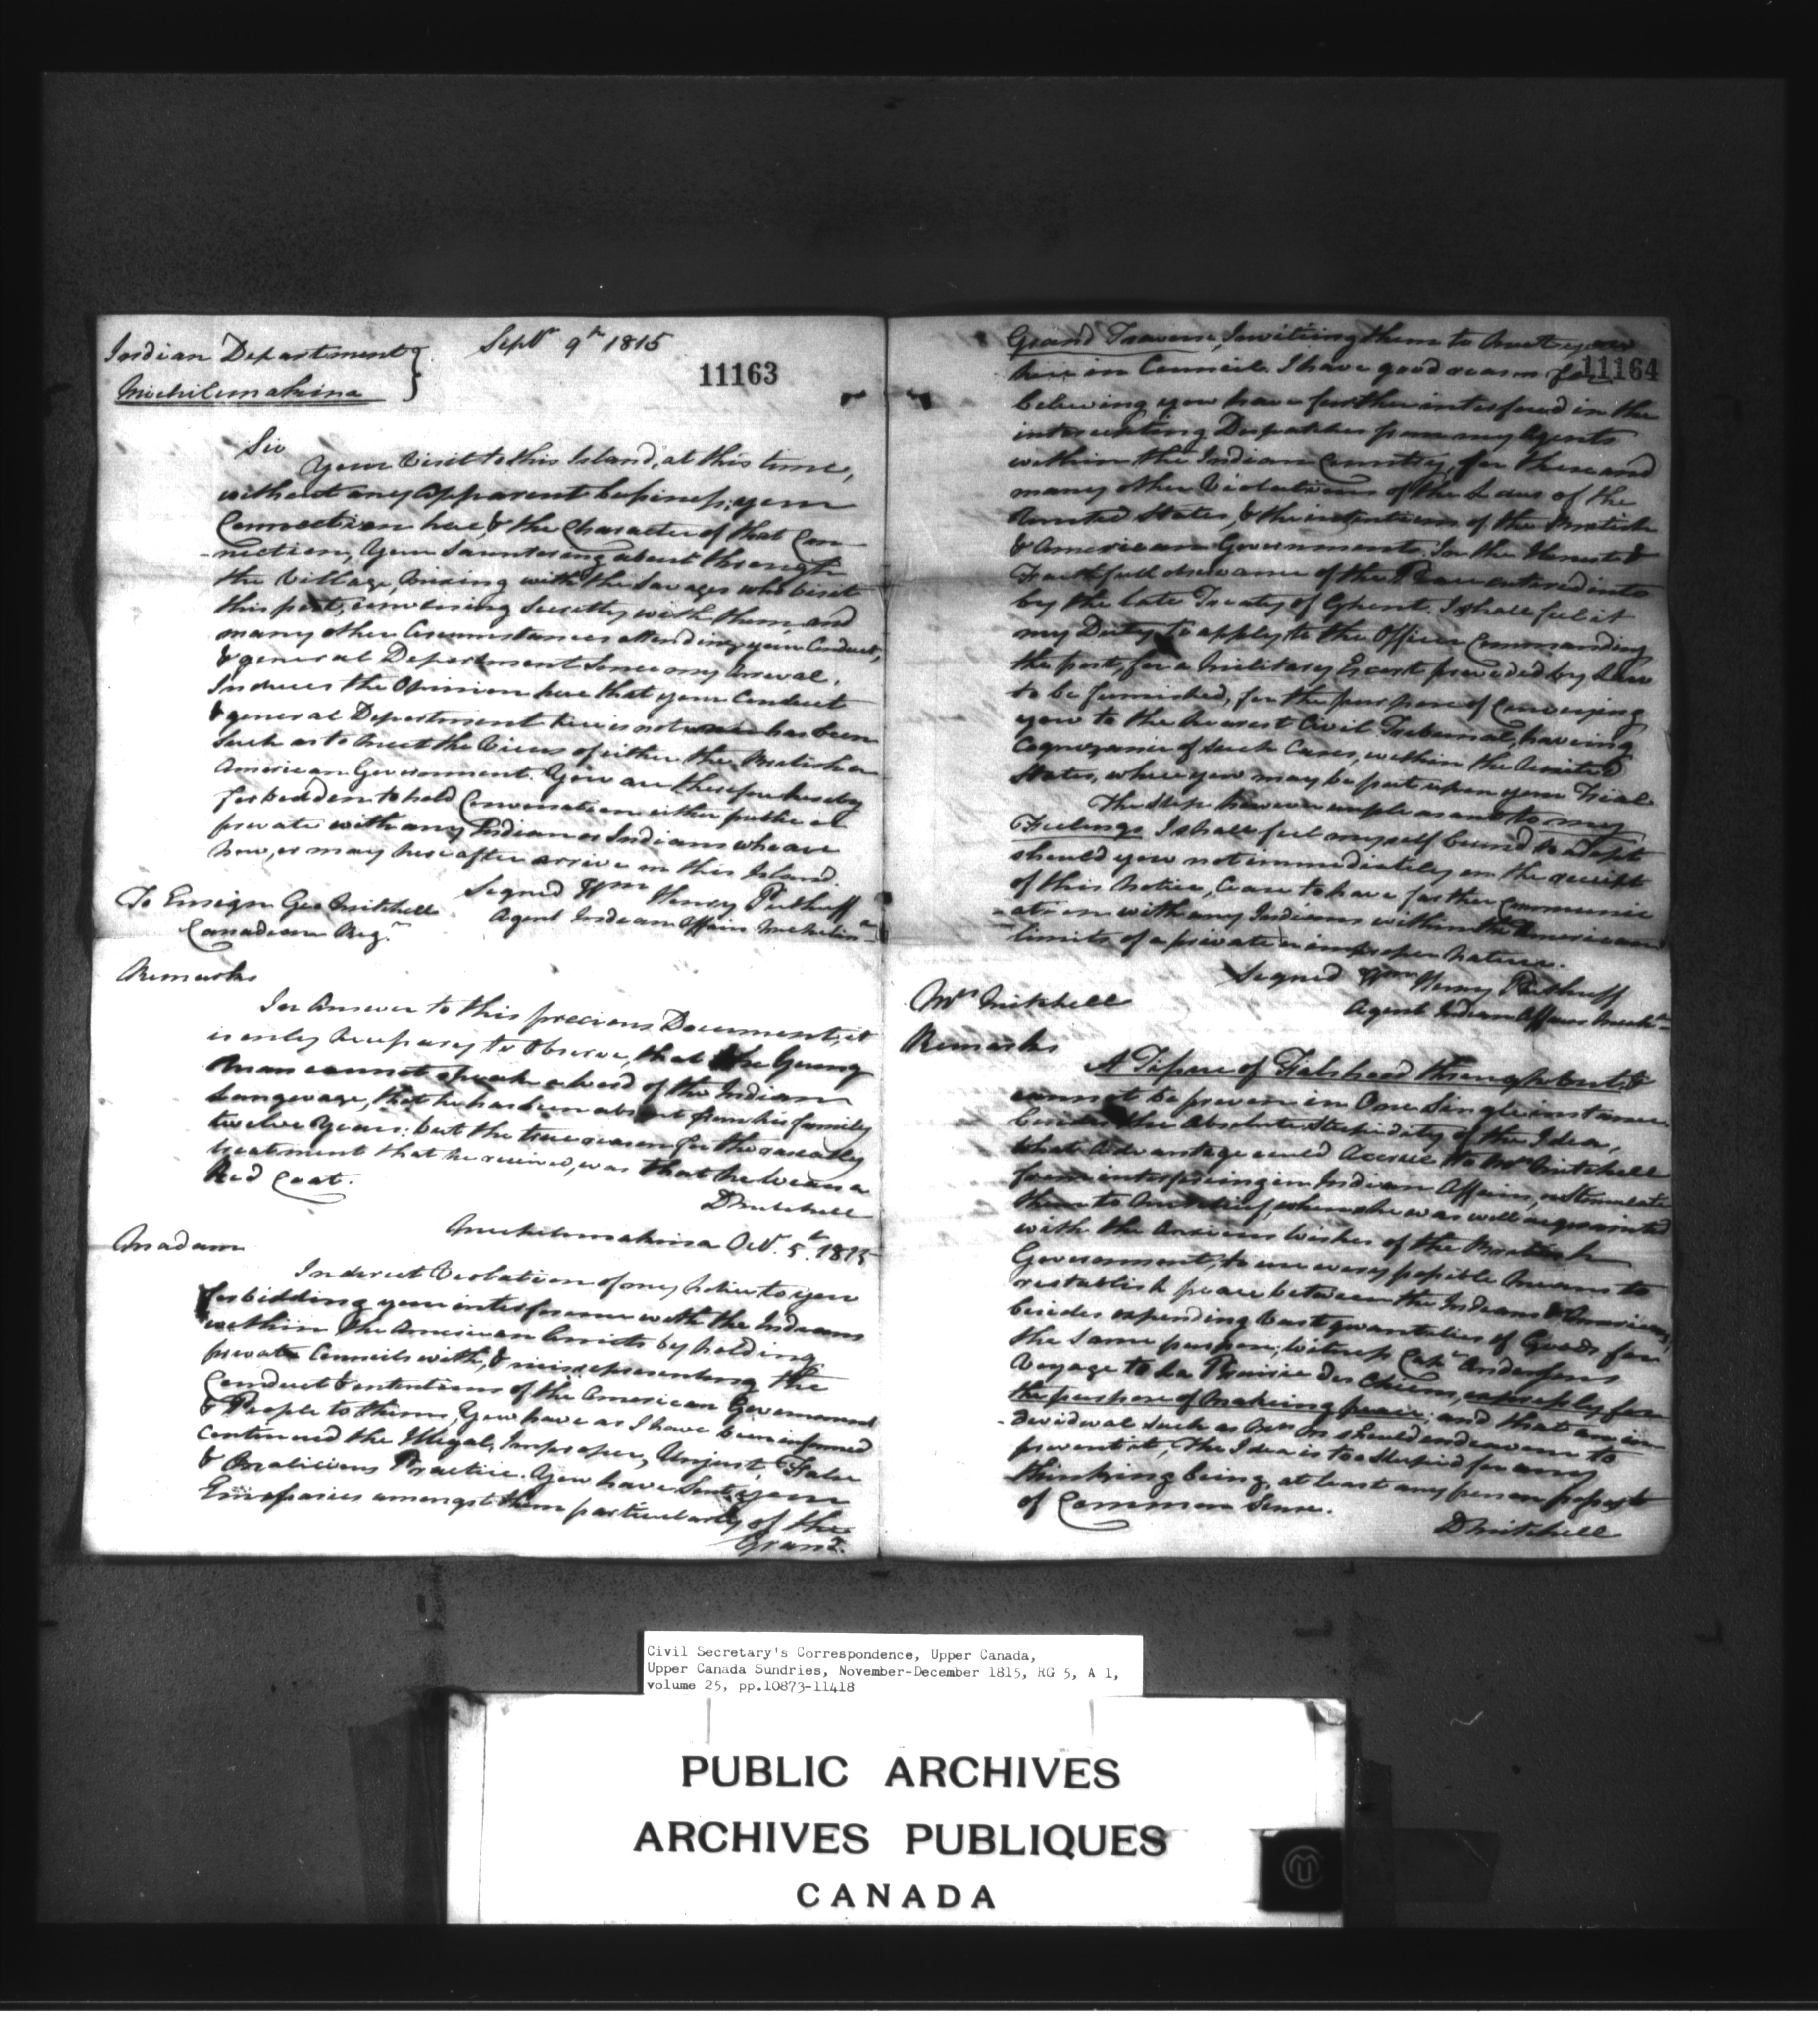 Indian Department }
Michilimakina
Septr 9th 1815
11163
Sir
Your Visit to this Island, at this time,
without any apparent business; your
Connection here, & the Character of that Con
-nection, Your Sauntering about through
the Village, Mixing with the Savages who visit
this post, conversing Secretly with them, and
many other Circumstances attending your Conduct,
& general Department Since my Arrival.
Induces the Opinion here that your Conduct
& general Department here is not has been
Such as to meet the Views of either the British or
American Government. You are therefore hereby
forbidden to hold Conversation either public or
private with any Indian or Indians who are
now, or may hereafter arrive on this Island.
Signed Wm Henry Puthuff
Agent Indian Affairs Michilima
To Ensign Geo Mitchell
Canadian Regt
Remarks
In Answer to this precious Document, it
is only necessary to Observe, that the Young
Man cannot speak a Word of the Indian
Language, that he has been absent from his family
twelve Years; but the true reason for the rascally
treatment that he received, was that he wears a
Red Coat.
DMitchell
Michilimakina Octr. 5th 1815
Madam
In direct Violation of my Notice to you
forbidding your interference with the Indians
within the American limits by holding
private Councils with, & misrepresenting the
Conduct & intentions of the American Government
& People to them, You have as I have been informed
continued the Illegal, Improper, Unjust, False
& Malicious Practice. You have Sent your
Emissaries amongst them particularly of the
Grand
Grand Traverse, Inviting them to Meet you
here in Council. I have good reason for
11164
believing you have further interfered in the
intercepting Dispatches from my Agents
within the Indian Country, for these and
many other Violations of the Laws of the
United States, & the intentions of the British
& American Governments. In the Honest &
Faithfull observance of the Peace entered into
by the late Treaty of Ghent. I shall feel it
my Duty to apply to the Officer Commanding
the post, for a Military Escort provided by Law
to be furnished, for the purpose of Conveying
you to the nearest Civil Tribunal, having
Cognizance of such Cases, within the United
States, where you may be put upon your Trial.
The Step however unpleasant to my
Feelings I shall feel myself bound to adopt
should you not immediately on the receipt
of this Notice, Cease to have further Communic
-ation with any Indians within the American
limits of a private or improper nature.
Signed Wm Henry Puthuff
Agent Indian Affairs Michi
Mrs Mitchell
Remarks
A Tissue of Falshood throughout, &
cannot be proven in One Single instance.
besides the Absolute Stupidity of the Idea,
What Advantage could Accrue to Mrs Mitchell
from interfering in Indian Affairs, or Stimulate
them to Mischief, when she was well acquainted
with the Anxious Wishes of the British
Government, to use every possible Means to
restablish peace between the Indians & Americans,
besides expending Vast quantities of Goods for
the Same purpose; witness Capt Andersons
Voyage to La Prairie des Chiens, expressly for
the purpose of Making peace; and that an in
-dividual such as Mrs M should endeavour to
prevent it, The Idea is too Stupid for any
thinking being, at least any person possess'd
of Common Sense.
DMitchell
Civil Secretary's Correspondence, Upper Canada,
Upper Canada Sundries, November-December 1815, RG 5, A 1,
volume 25, pp.10873-11418
PUBLIC ARCHIVES
ARCHIVES PUBLIQUES
CANADA